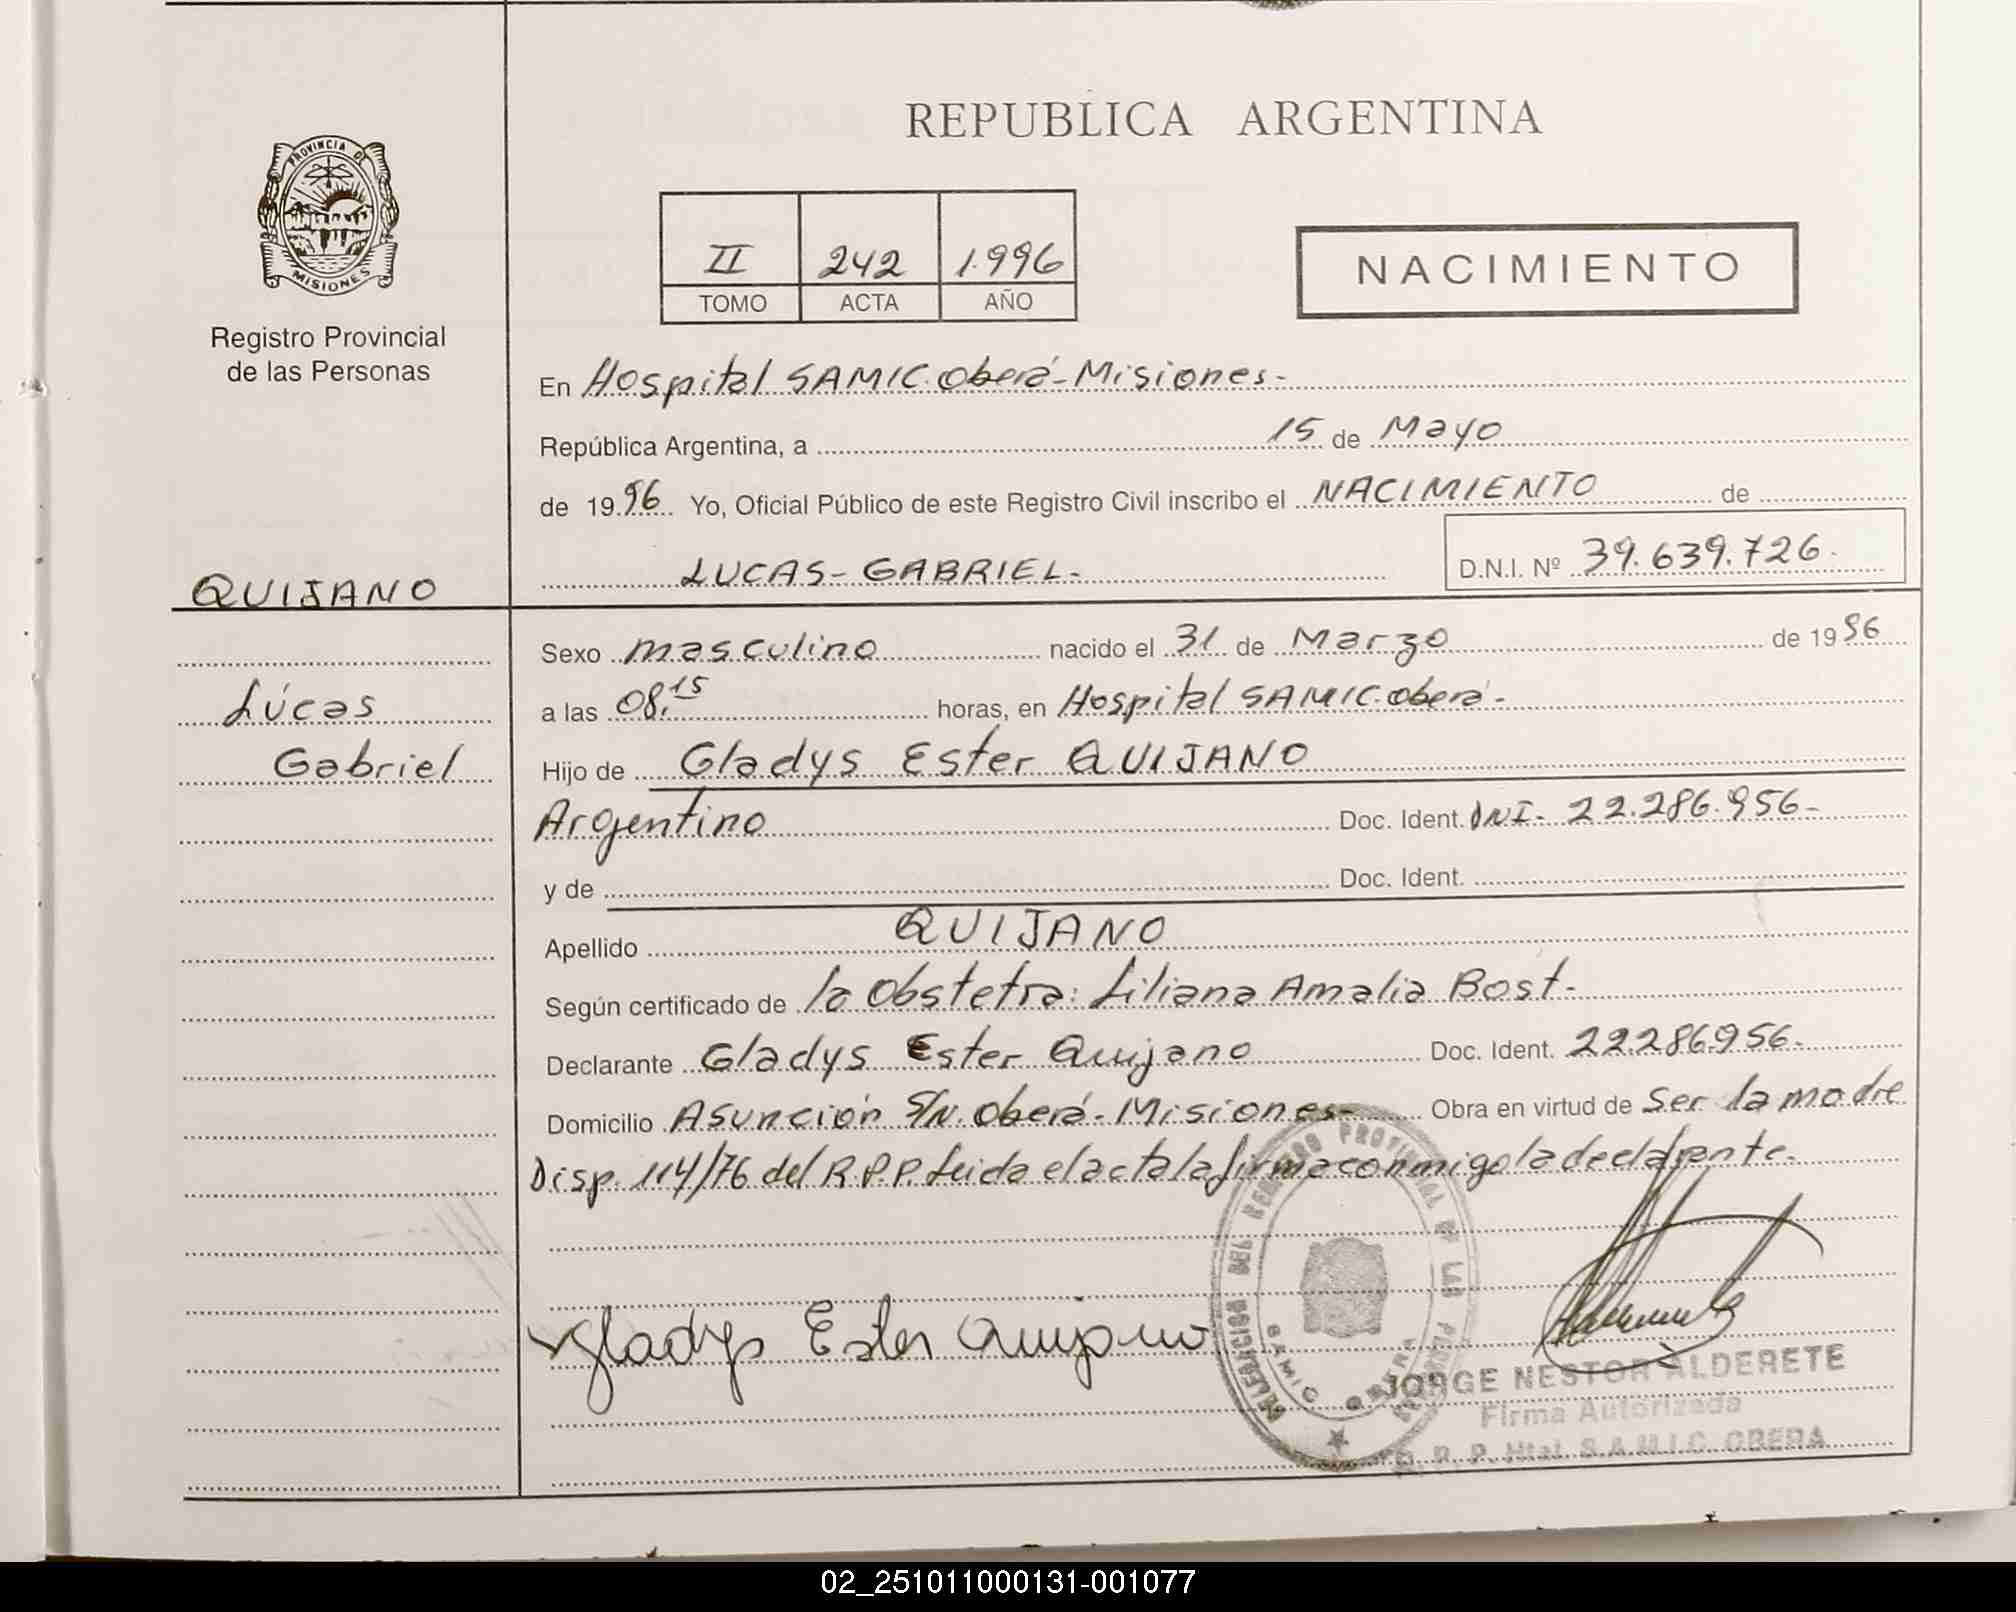 REPUBLICA ARGENTINA
PROVINCIA DE
MISIONES
Registro Provincial
de las Personas
II 242 1.996
TOMO ACTA AÑO
NACIMIENTO
En Hospital SAMIC. Oberá-Misiones-
República Argentina, a 15 de Mayo
de 19 96 Yo, Oficial Público de este Registro Civil inscribo el NACIMIENTO de
LUCAS-GABRIEL-
D.N.I. Nº 39.639.726.
QUIJANO
Lúcas
Gabriel
Sexo masculino nacido el 31 de Marzo de 19 96
a las 08.15 horas, en Hospital SAMIC. Oberá-
Hijo de Gladys Ester QUIJANO
Argentino Doc. Ident. DNI- 22.286.956-
y de Doc. Ident.
Apellido QUIJANO
Según certificado de la Obstetra: Liliana Amalia Bost-
Declarante Gladys Ester Quijano Doc. Ident. 22.286.956-
Domicilio Asunción S/N. Oberá-Misiones- Obra en virtud de Ser la madre
Disp. 114/76 del R.P.P. Leida el acta la firma conmigo la declarante.
Gladys Ester Quijano
DELEGACION DEL REGISTRO PROVINCIAL DE LAS PERSONAS
SAMIC OBERA
JORGE NESTOR ALDERETE
Firma Autorizada
R. P. Htal. S.A.M.I.C. OBERA
02_251011000131-001077